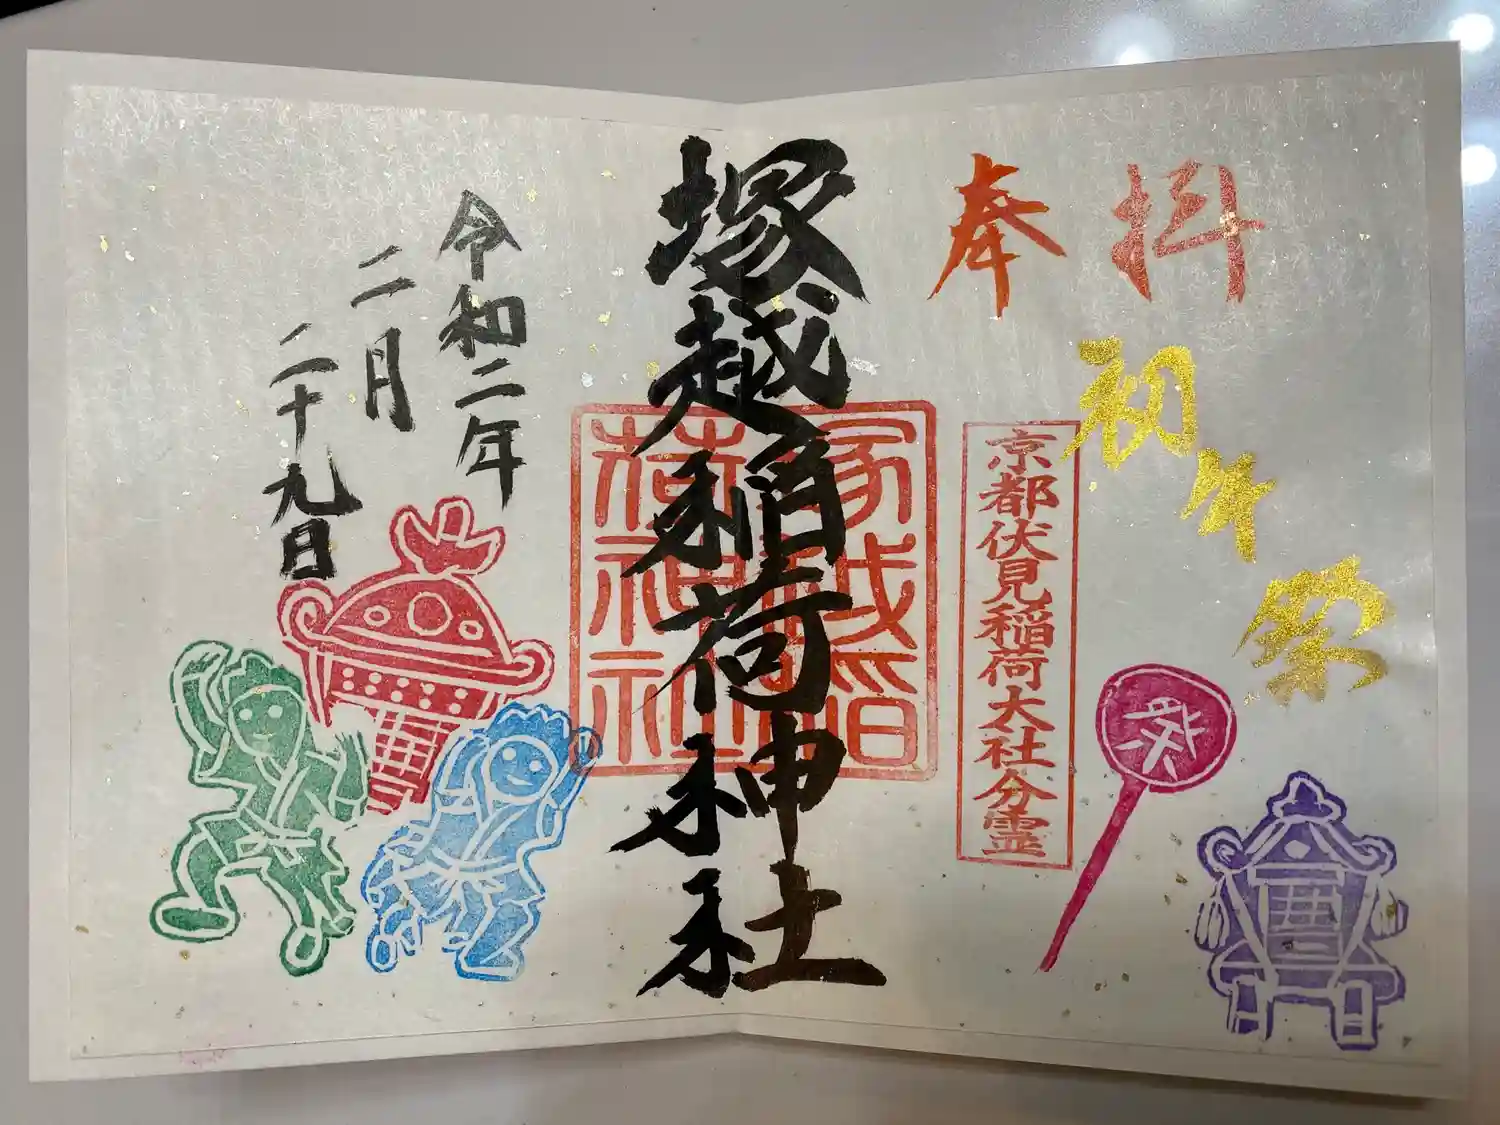 奉拝
初午祭
京都伏見稲荷大社分霊
祭
塚越稲荷神社
塚越稲荷神社
令和二年
二月
二十九日